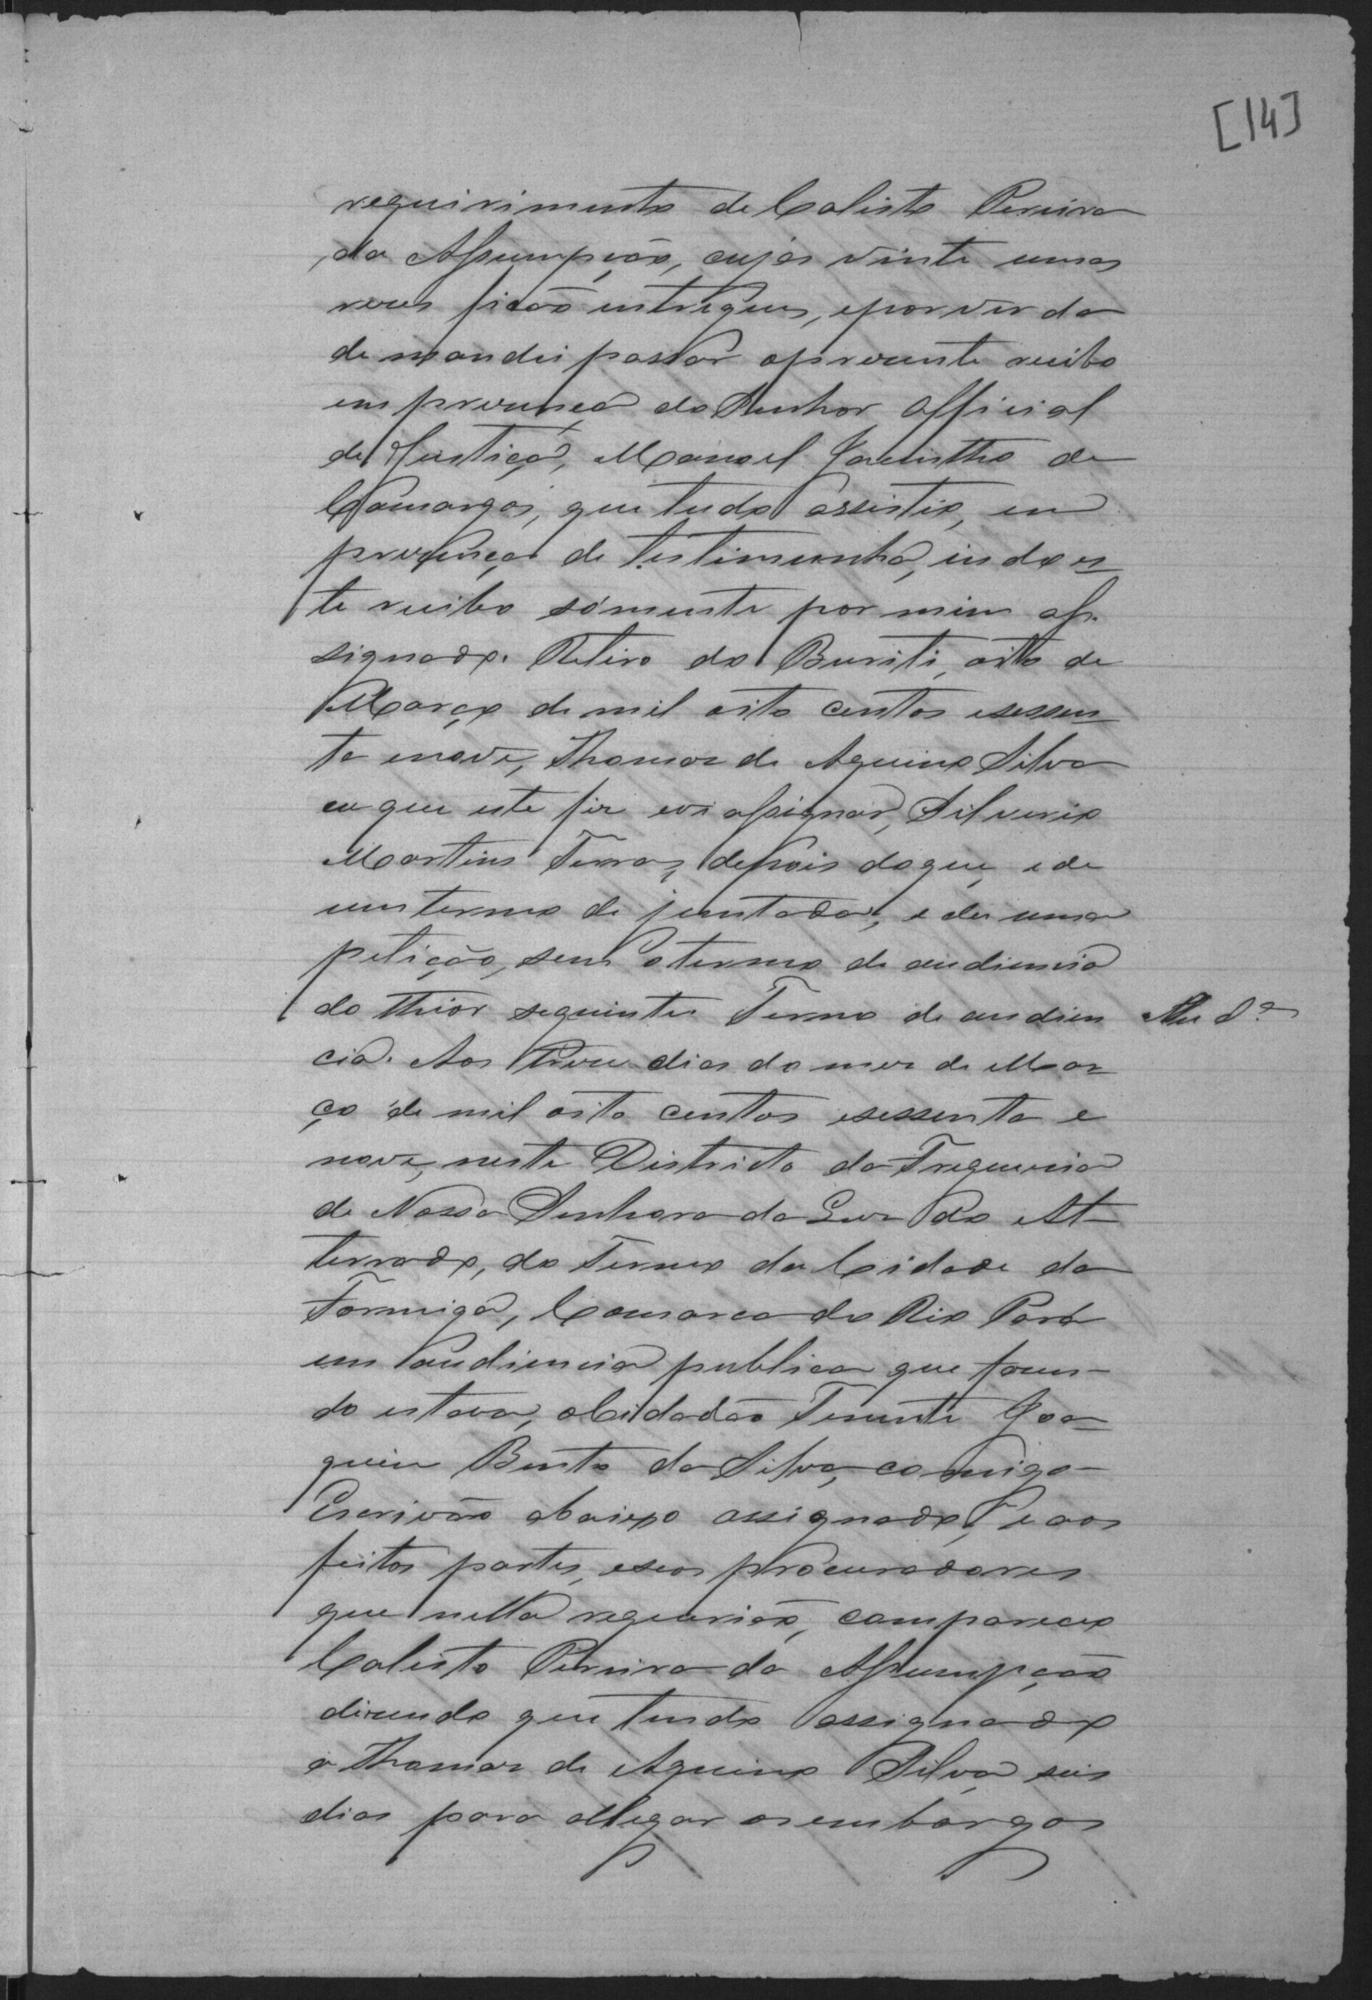 [14]
requirimento de Calisto Pereira
da Assumpção, cujas vinte umas
reses ficão entregues, e por verda
de mandei passar o presente recibo
em presença do Senhor Official
de Justiça, Manoel Jacintho de
Camargos, que tudo assistio, em
presença de testimunha, indo es
te recibo sómente por mim as-
signado. Retiro do Buriti, oito de
Março de mil oito centos e sessen
ta e nove, Thomaz de Aquino Silva
eu que este fiz e vi assignar, Silverio
Martins Ferraz, depois do que, e de
um termo de juntada, e de uma
petição, seu o termo de audiencia
do theor seguinte Termo de audien Aud.ª
cia. Aos treze dias do mez de Mar
ço de mil oito centos e sessenta e
nove, neste Districto da Freguezia
de Nossa Senhora da Luz do At
terrado, do Termo da Cidade da
Formiga, Comarca do Rio Pará
em audiencia publica que fasen-
do estava, o Cidadão Tenente Joa
quim Bento da Silva, comigo
Escrivão abaixo assignado, e aos
feitos partes, e seos procuradores
que nella requerião, compareceo
Calisto Pereira da Assumpção
dizendo que tendo assignado
a Thomaz de Aquino Silva seis
dias para allegar os embargos